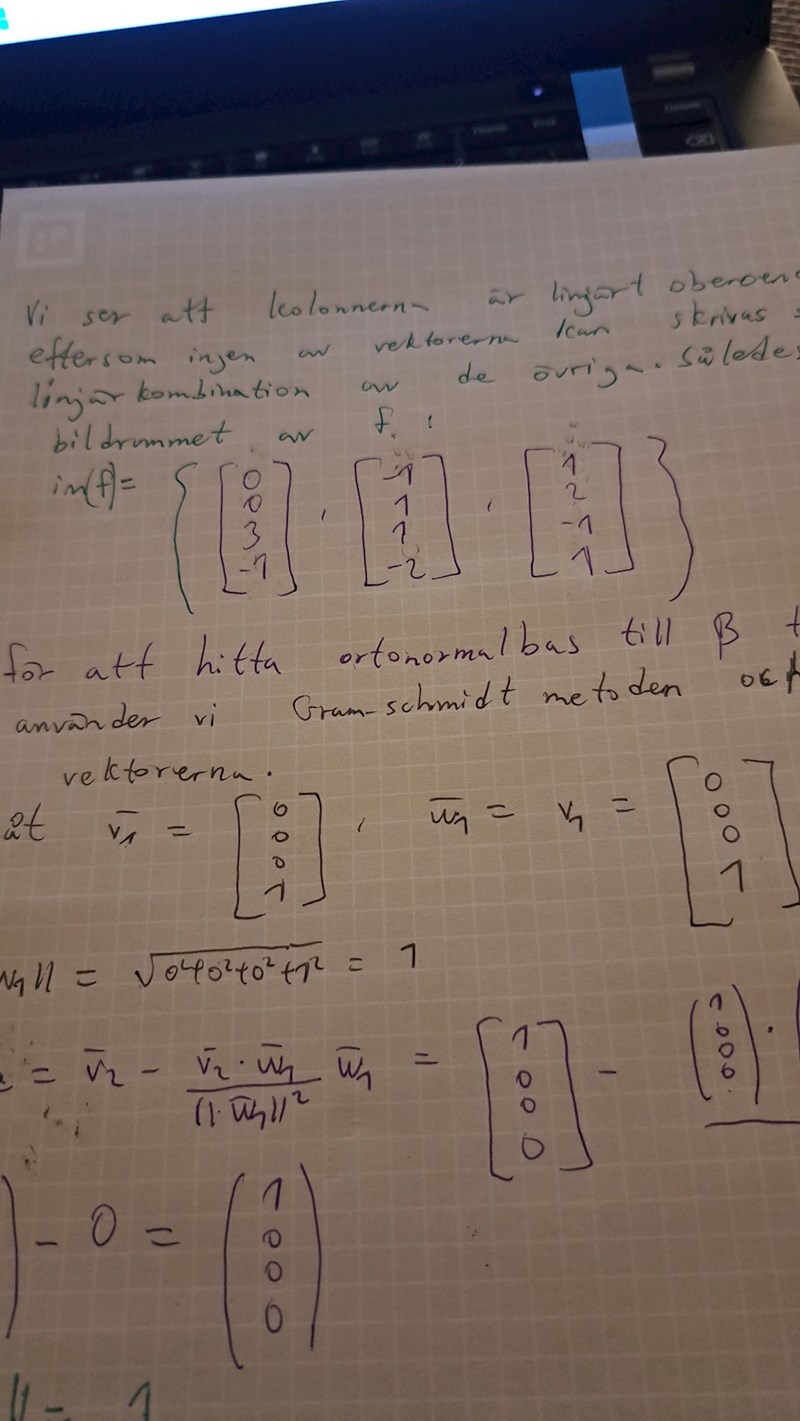 Vi ser att kolonnerna är linjärt oberoen
eftersom ingen av vektorerna kan skrivas s
linjär kombination av de övriga. Således
bildrummet av f:
im(f)= { [0 0 3 -1], [-1 1 1 -2], [1 2 -1 1] }
för att hitta ortonormalbas till β t
använder vi Gram-schmidt metoden och
vektorerna.
åt v̄1 = [0 0 0 1], w̄1 = v1 = [0 0 0 1]
w1|| = √0²+0²+0²+1² = 1
= v̄2 - (v̄2 · w̄1)/(||w̄1||²) w̄1 = [1 0 0 0] - (1 0 0 0) ·
) - 0 = (1 0 0 0)
|| = 1